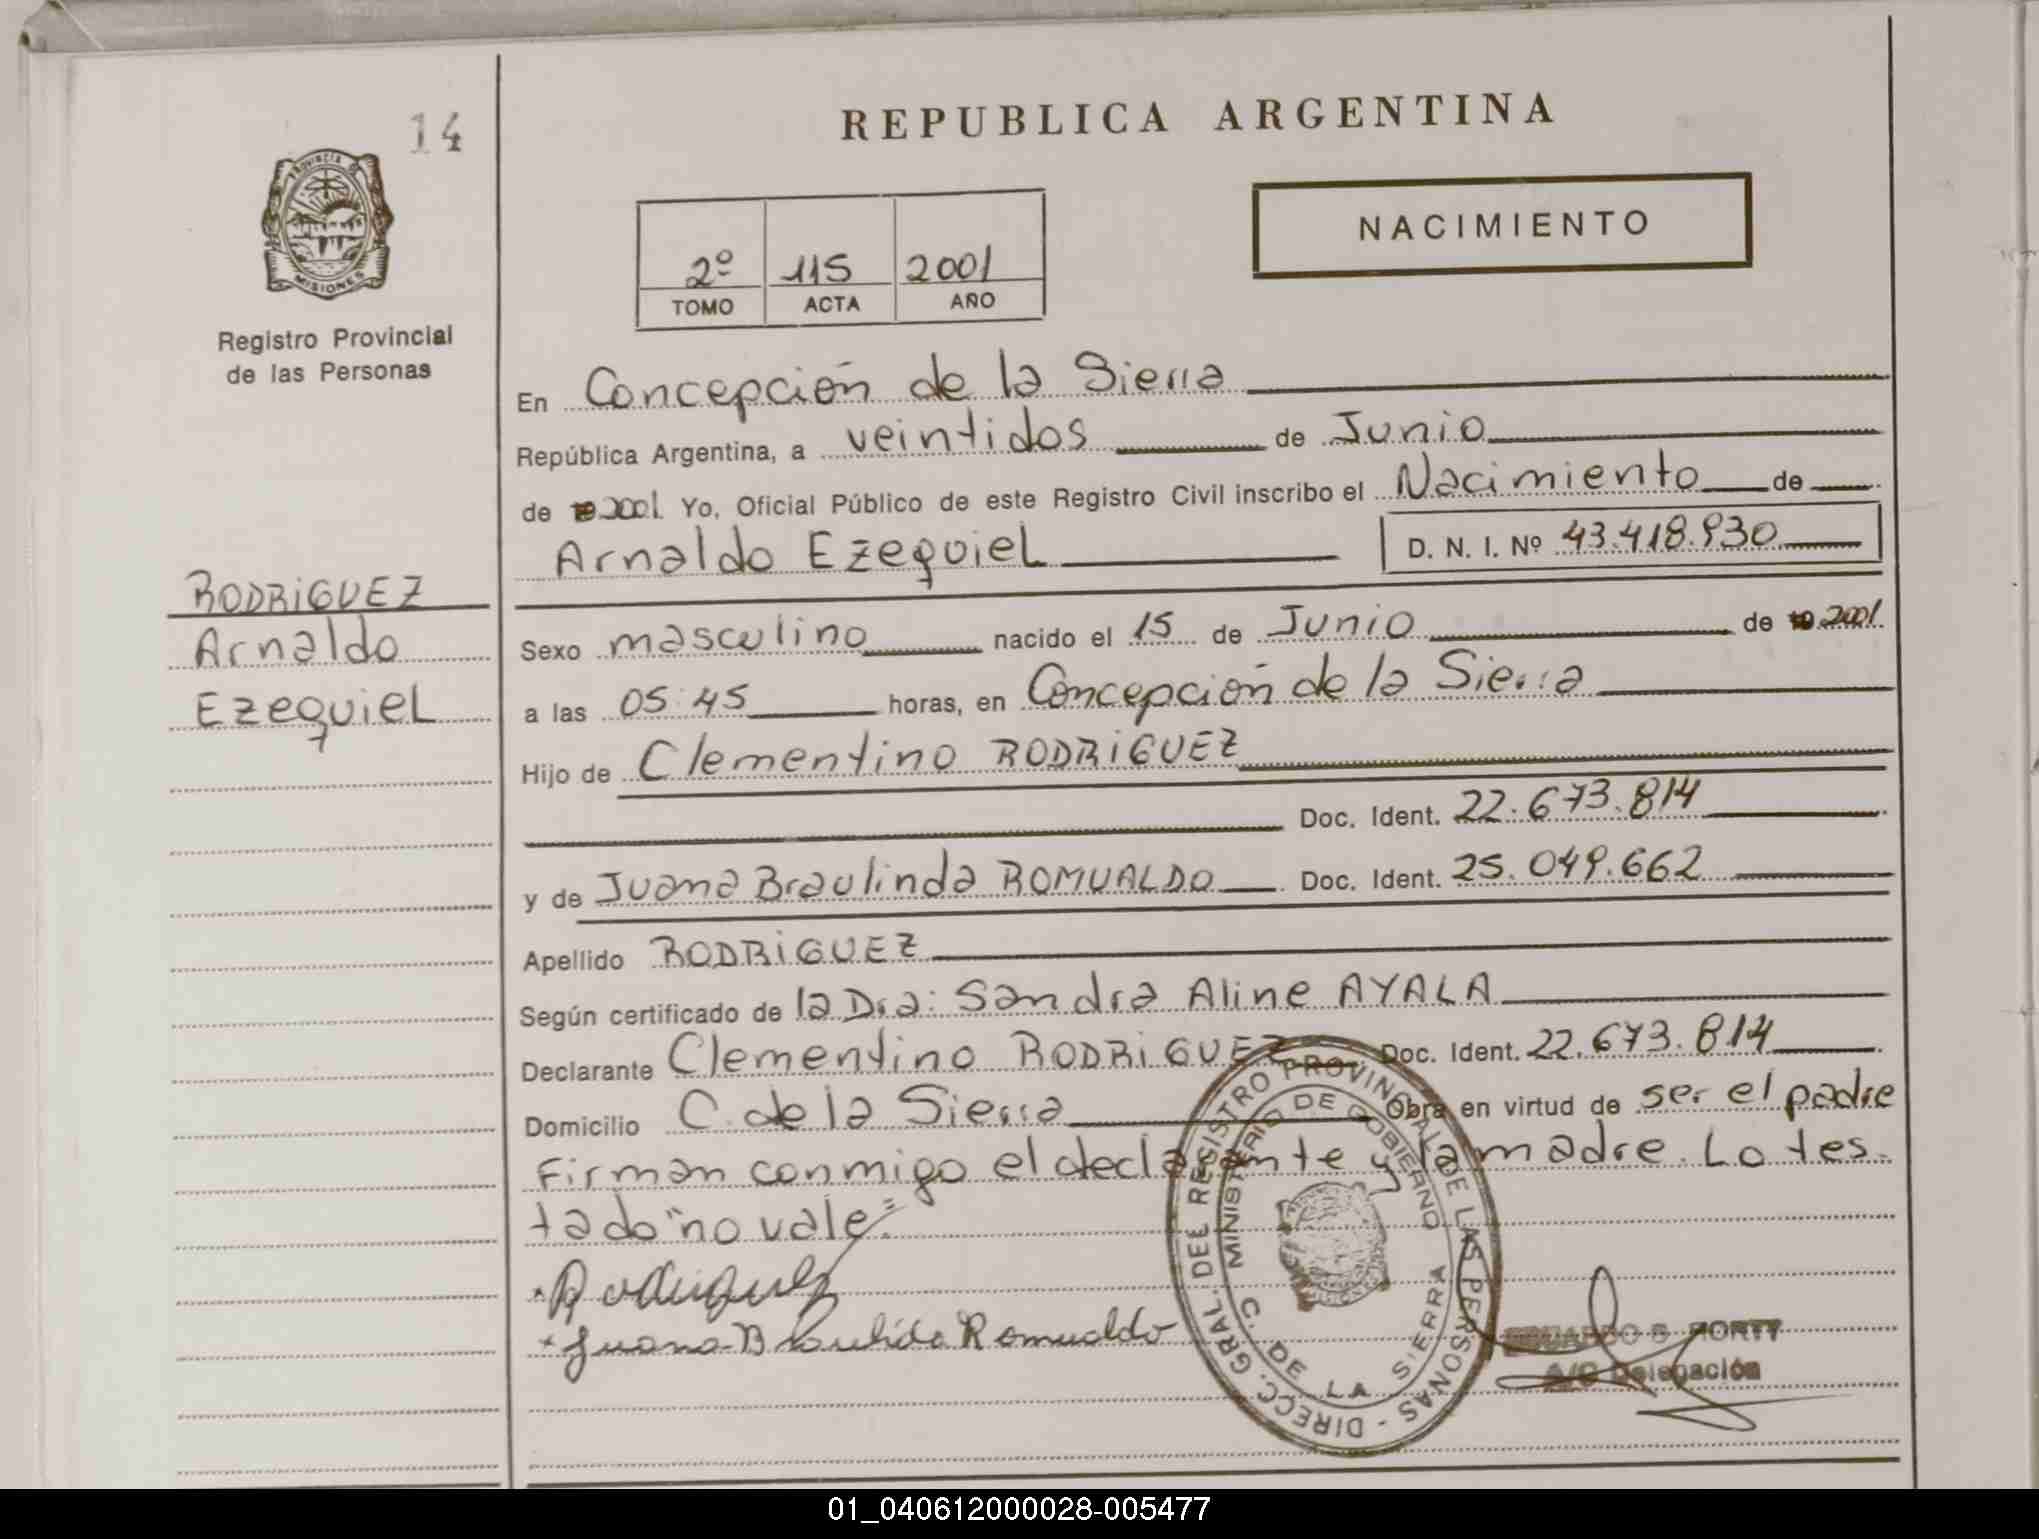 14
REPUBLICA ARGENTINA
PROVINCIA DE
MISIONES
NACIMIENTO
2º 115 2001
TOMO ACTA AÑO
Registro Provincial
de las Personas
En Concepción de la Sierra
República Argentina, a veintidos de Junio
de 2001. Yo, Oficial Público de este Registro Civil inscribo el Nacimiento de
Arnaldo Ezequiel D. N. I. Nº 43.418.930
RODRiGUEZ
Arnaldo
Ezequiel
Sexo masculino nacido el 15 de Junio de 2001.
a las 05:45 horas, en Concepción de la Sierra
Hijo de Clementino RODRiGUEZ
Doc. Ident. 22.673.814
y de Juana Braulinda ROMUALDO Doc. Ident. 25.049.662
Apellido RODRiGUEZ
Según certificado de la Dra: Sandra Aline AYALA
Declarante Clementino RODRiGUEZ Doc. Ident. 22.673.814
Domicilio C. de la Sierra Obra en virtud de ser el padre
Firman conmigo el declarante y la madre. Lo tes-
tado "no vale"
Rodriguez
Juana B Romualdo
DIRECC. GRAL. DEL REGISTRO PROVINCIAL DE LAS PERSONAS -
MINISTERIO DE GOBIERNO
C. DE LA SIERRA
A/C Delegación
01_040612000028-005477